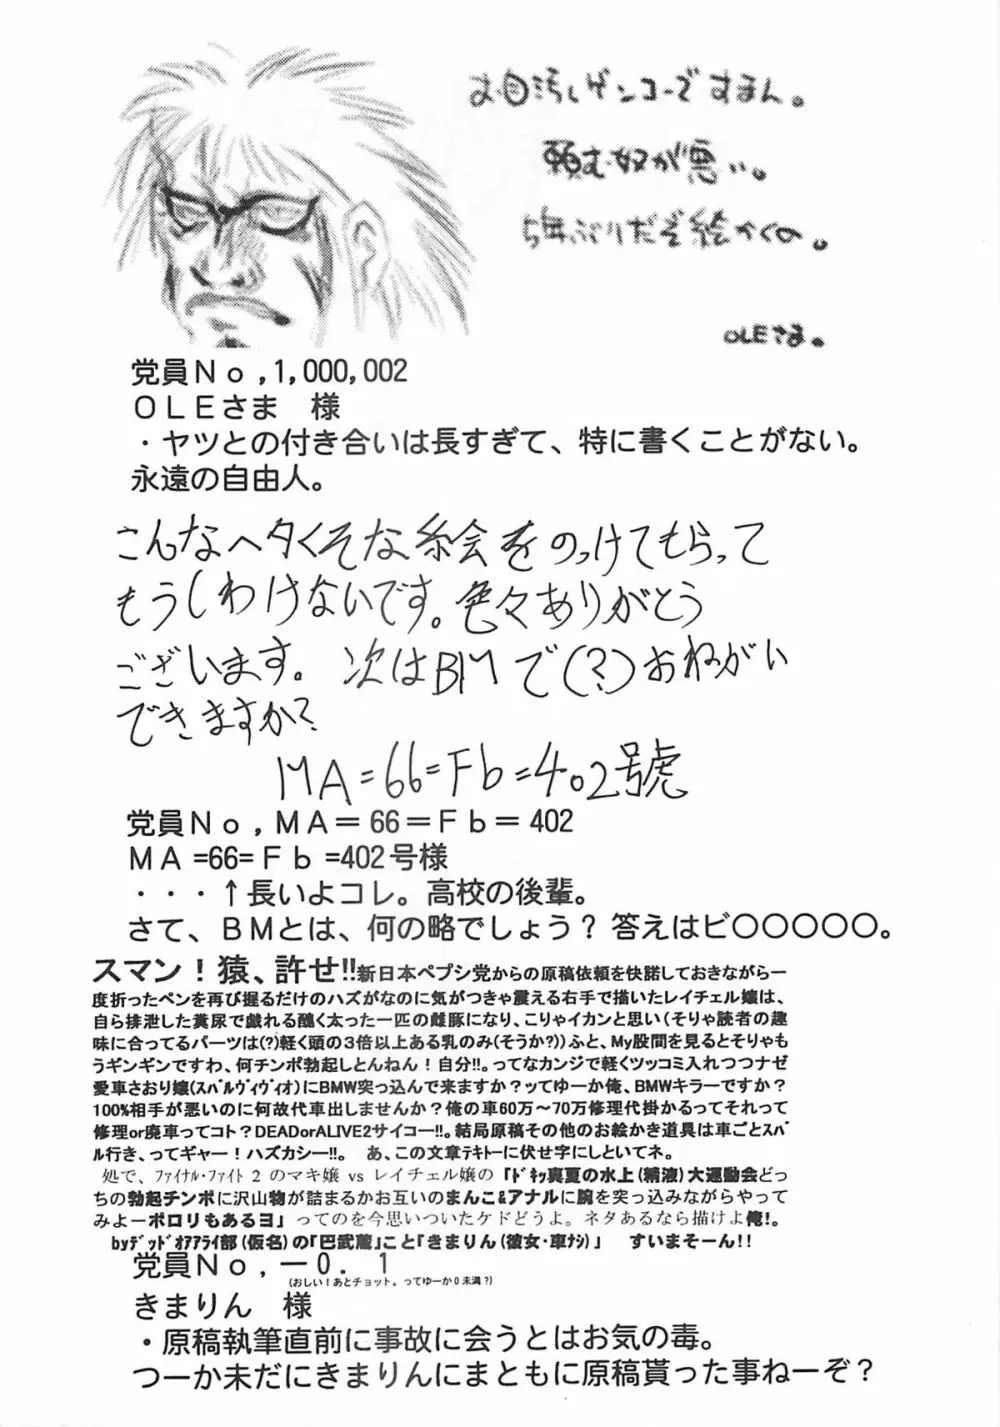 お目汚しゲンコーですまん。
頼む奴が悪い。
5年ぶりだぞ絵かくの。
OLEさま。
党員No,1,000,002
OLEさま　様
・ヤツとの付き合いは長すぎて、特に書くことがない。
永遠の自由人。
こんなヘタくそな絵をのっけてもらって
もうしわけないです。色々ありがとう
ございます。次はBMで(?)おねがい
できますか?
MA=66=Fb=402号虎
党員No,MA=66=Fb=402
MA=66=Fb=402号様
・・・↑長いよコレ。高校の後輩。
さて、BMとは、何の略でしょう?答えはビ〇〇〇〇〇。
スマン!猿、許せ!!新日本ペプシ党からの原稿依頼を快諾しておきながら一
度折ったペンを再び握るだけのハズがなのに気がつきゃ震える右手で描いたレイチェル嬢は、
自ら排泄した糞尿で戯れる醜く太った一匹の雌豚になり、こりゃイカンと思い(そりゃ読者の趣
味に合ってるパーツは(?)軽く頭の3倍以上ある乳のみ(そうか?))ふと、My股間を見るとそりゃも
うギンギンですわ、何チンポ勃起しとんねん!自分!!。ってなカンジで軽くツッコミ入れつつナゼ
愛車さおり嬢(スバルヴィヴィオ)にBMW突っ込んで来ますか?ッてゆーか俺、BMWキラーですか?
100%相手が悪いのに何故代車出しませんか?俺の車60万~70万修理代掛かるってそれって
修理or廃車ってコト?DEADorALIVE2サイコー!!。結局原稿その他のお絵かき道具は車ごとスバ
ル行き、ってギャー!ハズカシー!!。　あ、この文章テキトーに伏せ字にしといてネ。
処で、ファイナル・ファイト2のマキ嬢 vs レイチェル嬢の「ドキッ真夏の水上(精液)大運動会どっ
ちの勃起チンポに沢山物が詰まるかお互いのまんこ&アナルに腕を突っ込みながらやって
みよーポロリもあるヨ」ってのを今思いついたケドどうよ。ネタあるなら描けよ俺!。
byデッドオアアライ部(仮名)の「巴武蔵」こと「きまりん(彼女・車ナシ)」　すいまそーん!!
党員No,―0. 1
(おしい!あとチョット。ってゆーか0未満?)
きまりん　様
・原稿執筆直前に事故に会うとはお気の毒。
つーか未だにきまりんにまともに原稿貰った事ねーぞ?